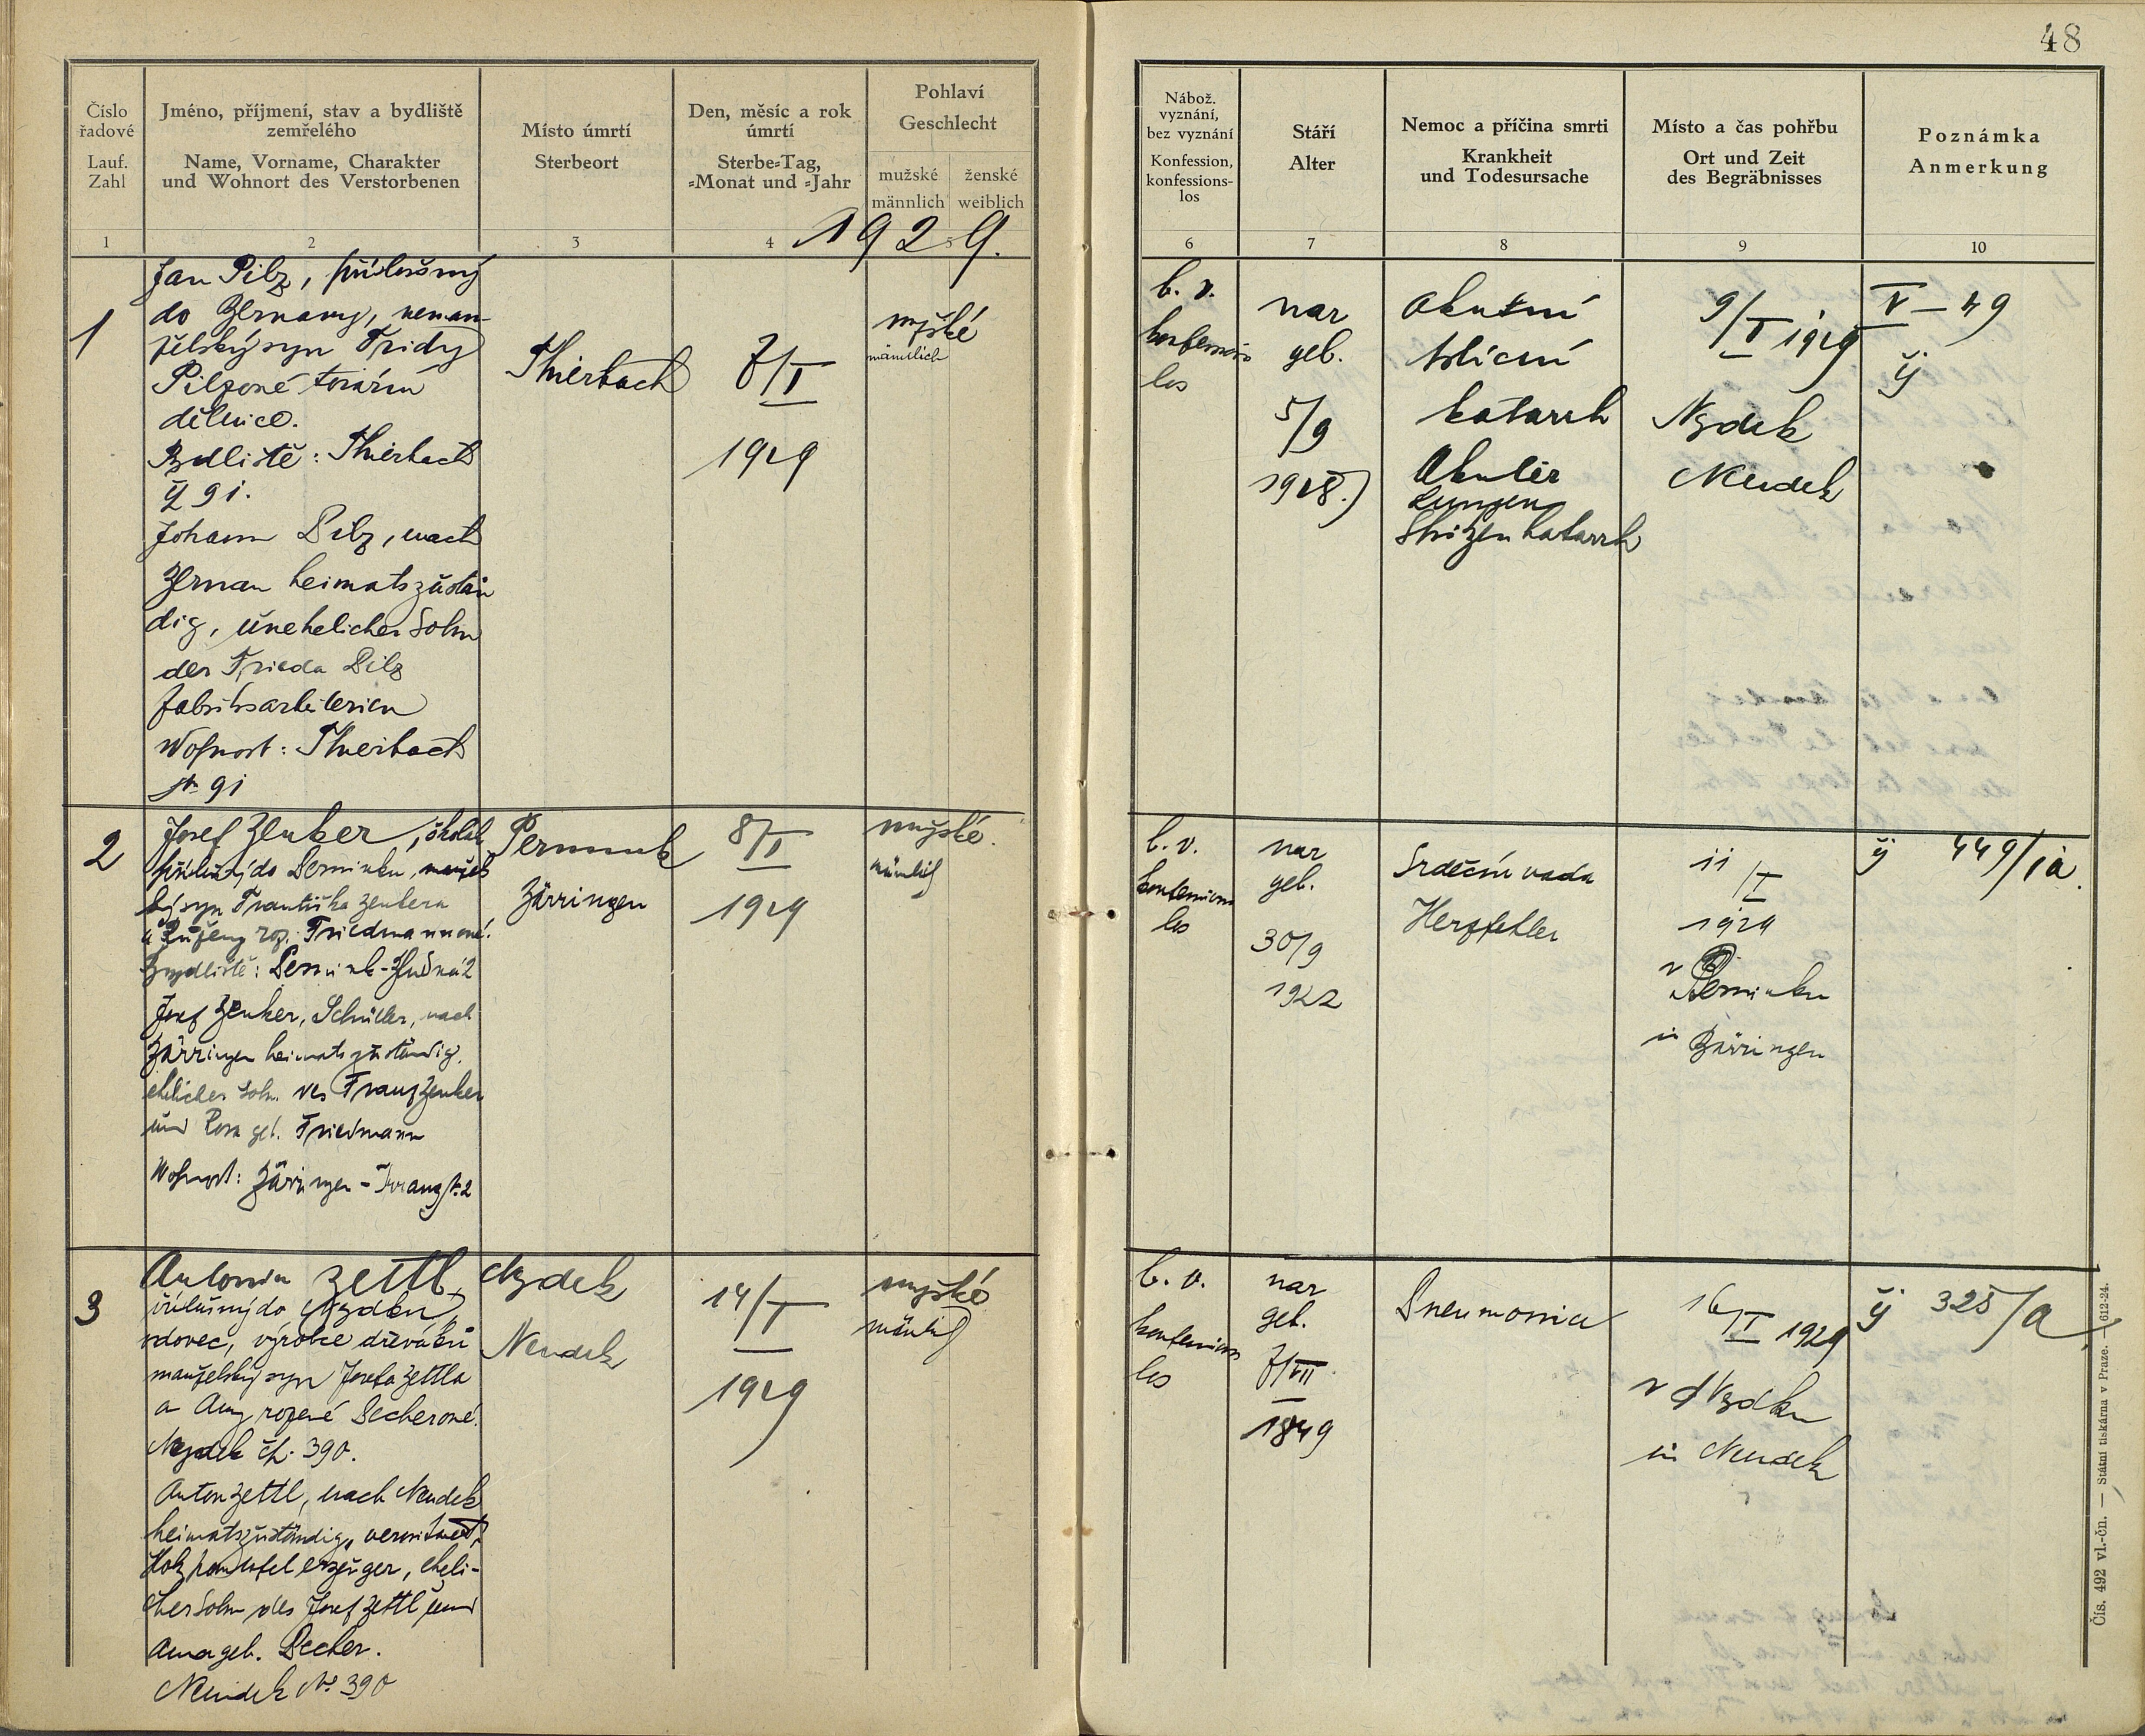 48
Číslo
řadové
Lauf.
Zahl
Jméno, příjmení, stav a bydliště
zemřelého
Name, Vorname, Charakter
und Wohnort des Verstorbenen
Místo úmrtí
Sterbeort
Den, měsíc a rok
úmrtí
Sterbe=Tag,
=Monat und =Jahr
Pohlaví
Geschlecht
mužské
männlich
ženské
weiblich
1 2 3 4 5
1929.
1
Jan Pilz, příslušný
do Germany, neman-
želský syn Fridy
Pilzové tovární
dělnice.
Bydliště: Thierbach
čj 91.
Johann Pilz, nach
German heimatszustän
dig, unehelicher Sohn
der Frieda Pilz
Fabriksarbeiterin
Wohnort: Thierbach
91
Thierbach
7/I
1929
mužské
männlich
2
Josef Zenker, školák
příslušný do Perninku, manžels
ký syn Františka Zenkera
a Růženy roz. Friedmannové.
Bydliště: Pernink-
Josef Zenker, Schüler, nach
Bärringen heimatszuständig,
ehelicher Sohn des Franz Zenker
und Rosa geb. Friedmann
Wohnort: Bärringen -
Pernink
Bärringen
8/I
1929
mužské.
männlich
3
Antonín Zettl,
příslušný do Nejdku,
vdovec, výrobce dřeváků
manželský syn Josefa Zettla
a Anny rozené Pecherové.
Nejdek čp. 390.
Anton Zettl, nach Neudek
heimatszuständig, verwitwet,
Holzpantofel erzeuger, eheli-
cher Sohn des Josef Zettl und
Anna geb. Pecher.
Neudek No 390
Nejdek
Neudek
14/I
1929
mužské
männlich
Nábož.
vyznání,
bez vyznání
Konfession,
konfessions-
los
Stáří
Alter
Nemoc a příčina smrti
Krankheit
und Todesursache
Místo a čas pohřbu
Ort und Zeit
des Begräbnisses
Poznámka
Anmerkung
6 7 8 9 10
b. v.
konfessions
los
nar
geb.
5/9
1928.
Akutní
katarrh
Akuter
Lungen
Spitzenkatarrh
9/I 1929
Nejdek
Neudek
V - 49
čj
b. v.
konfessions
los
nar
geb.
30/9
1922
Srdeční vada
Herzfehler
11/I
1929
v Perninku
in Bärringen
čj 449/1a.
b. v.
konfessions
los
nar
geb.
7/VII
1849
Pneumonia
16/I 1929
v Nejdku
in Neudek
čj 325/a
Čís. 492 vl.-čn. — Státní tiskárna v Praze. — 612-24.